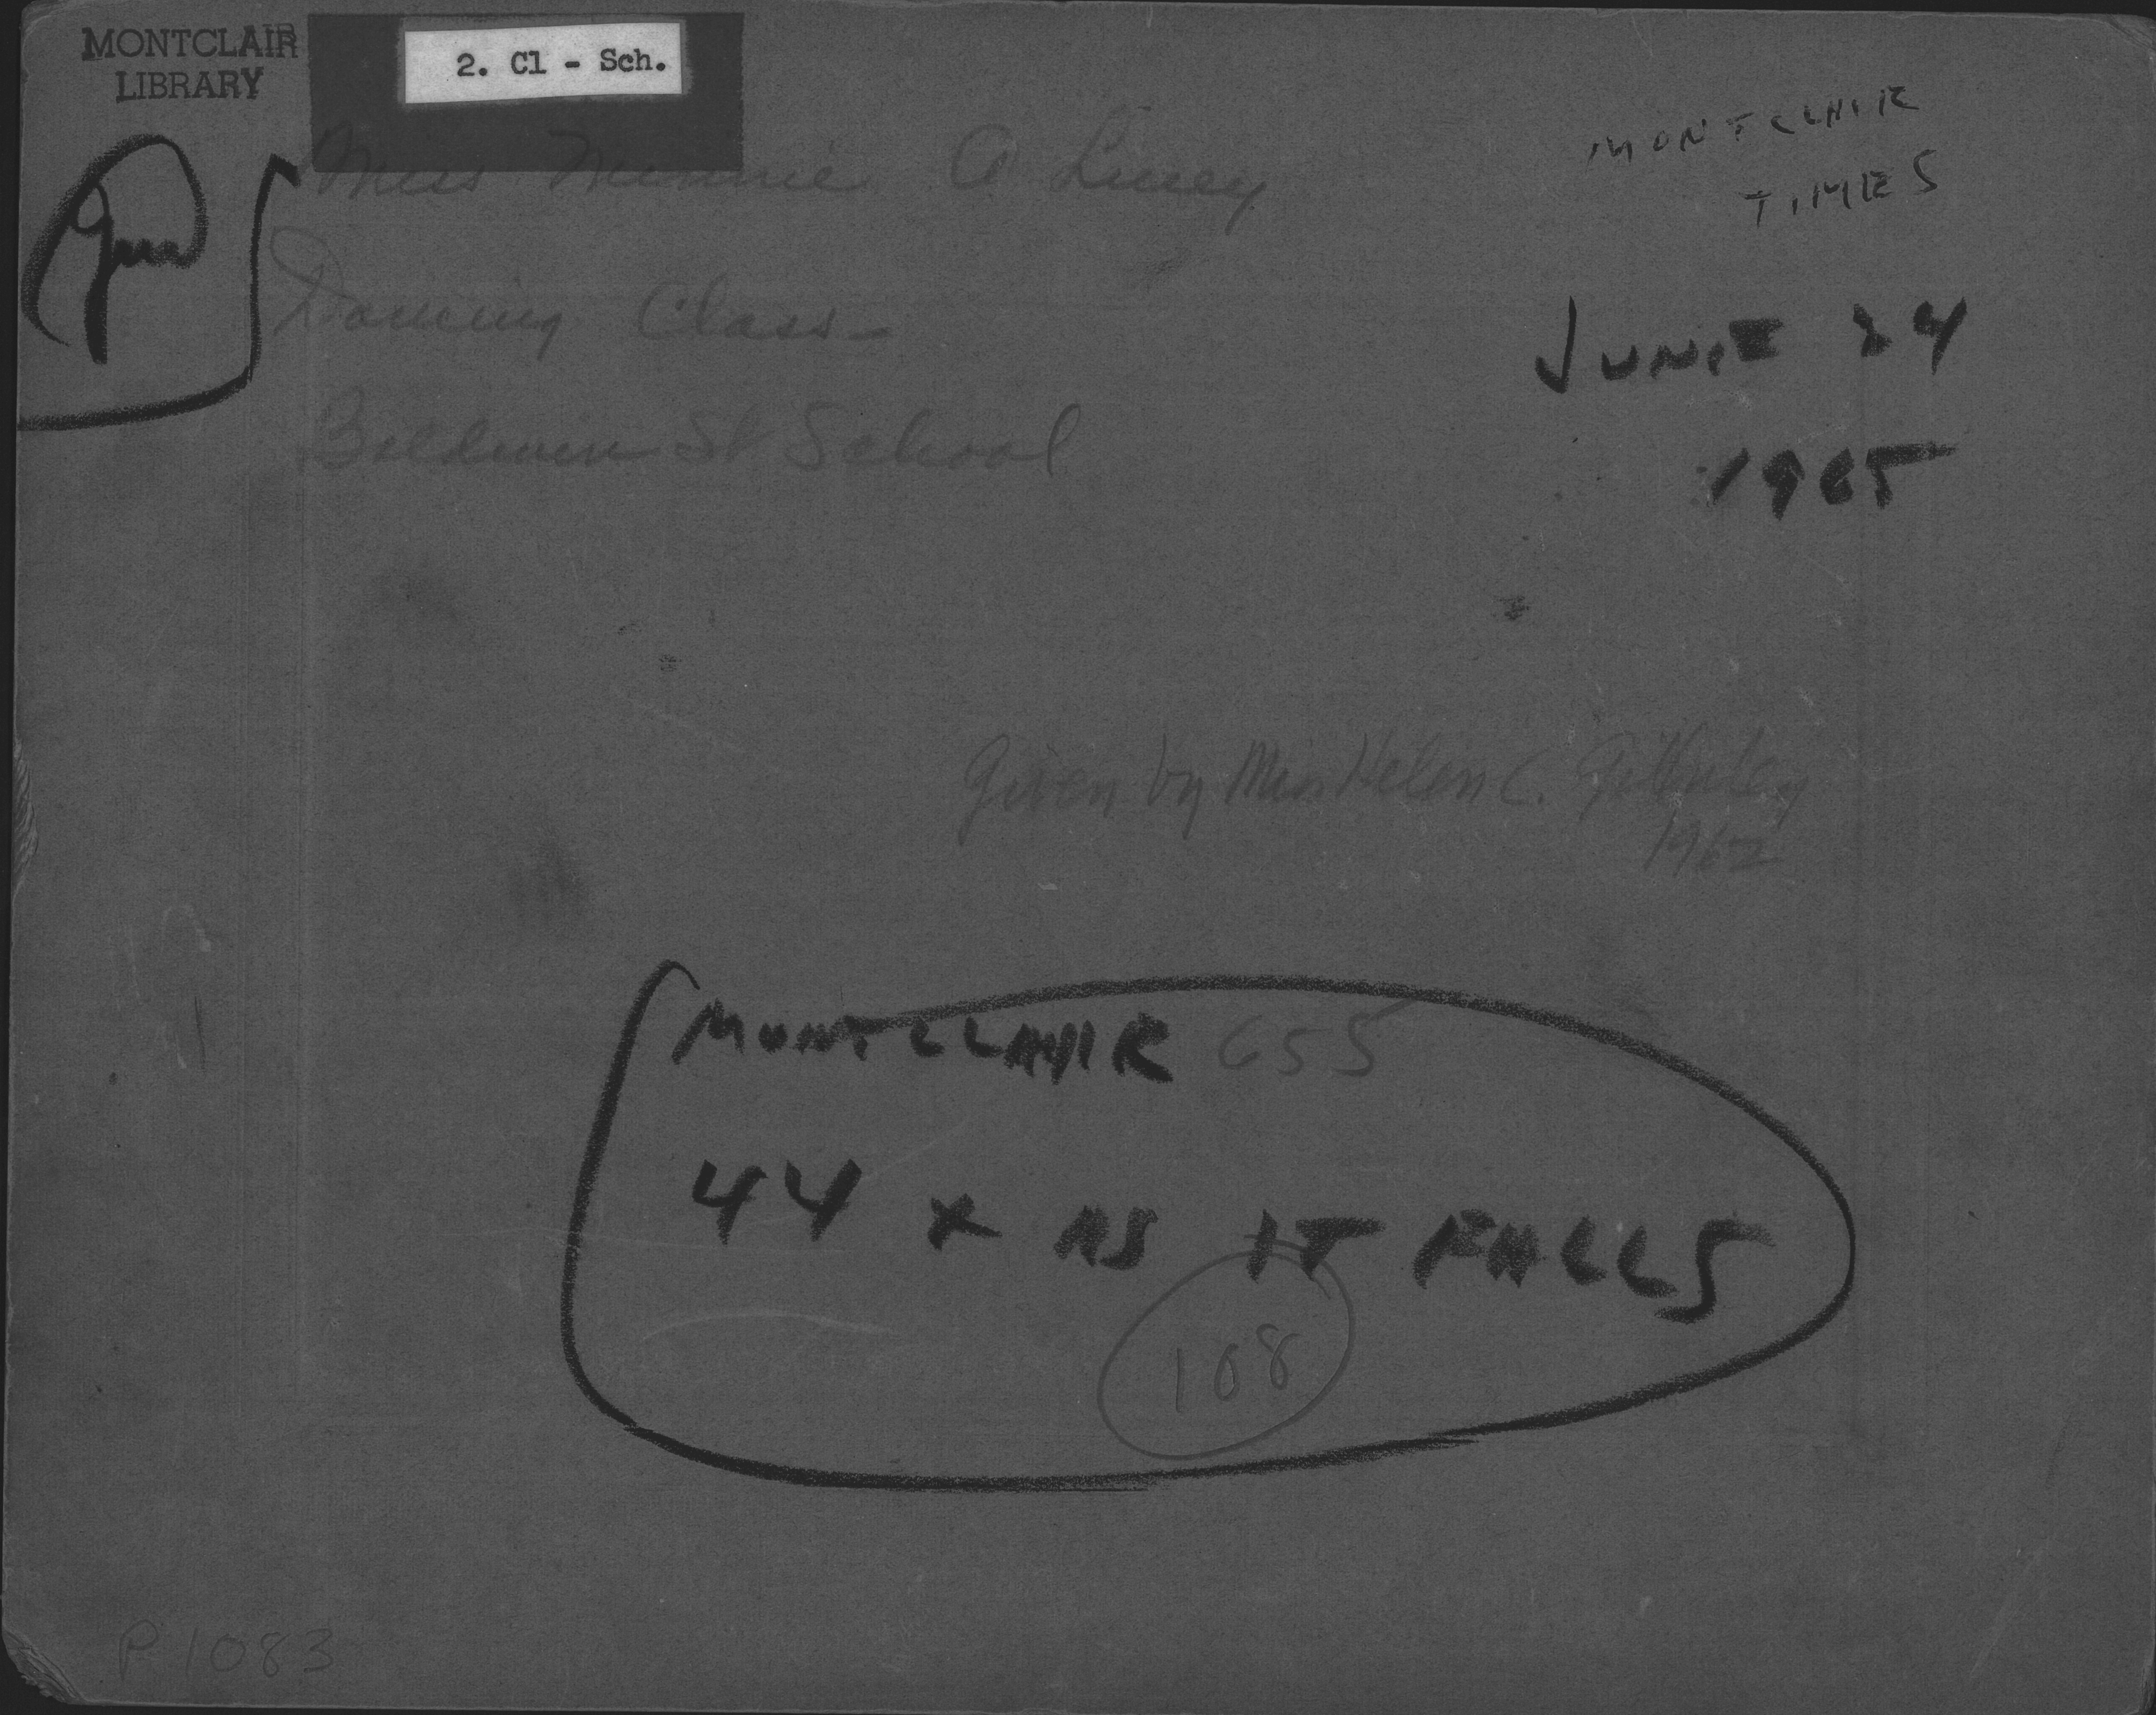 MONTCLAIR
LIBRARY
2. Cl - Sch.
Miss Minnie A Lucey
Dancing Class-
Baldwin St School
MONTCLAIR
TIMES
JUNE 24
1965
Given by Miss Helen C.
1962
MONTCLAIR 655
44 x AS IT FALLS
108
P1083